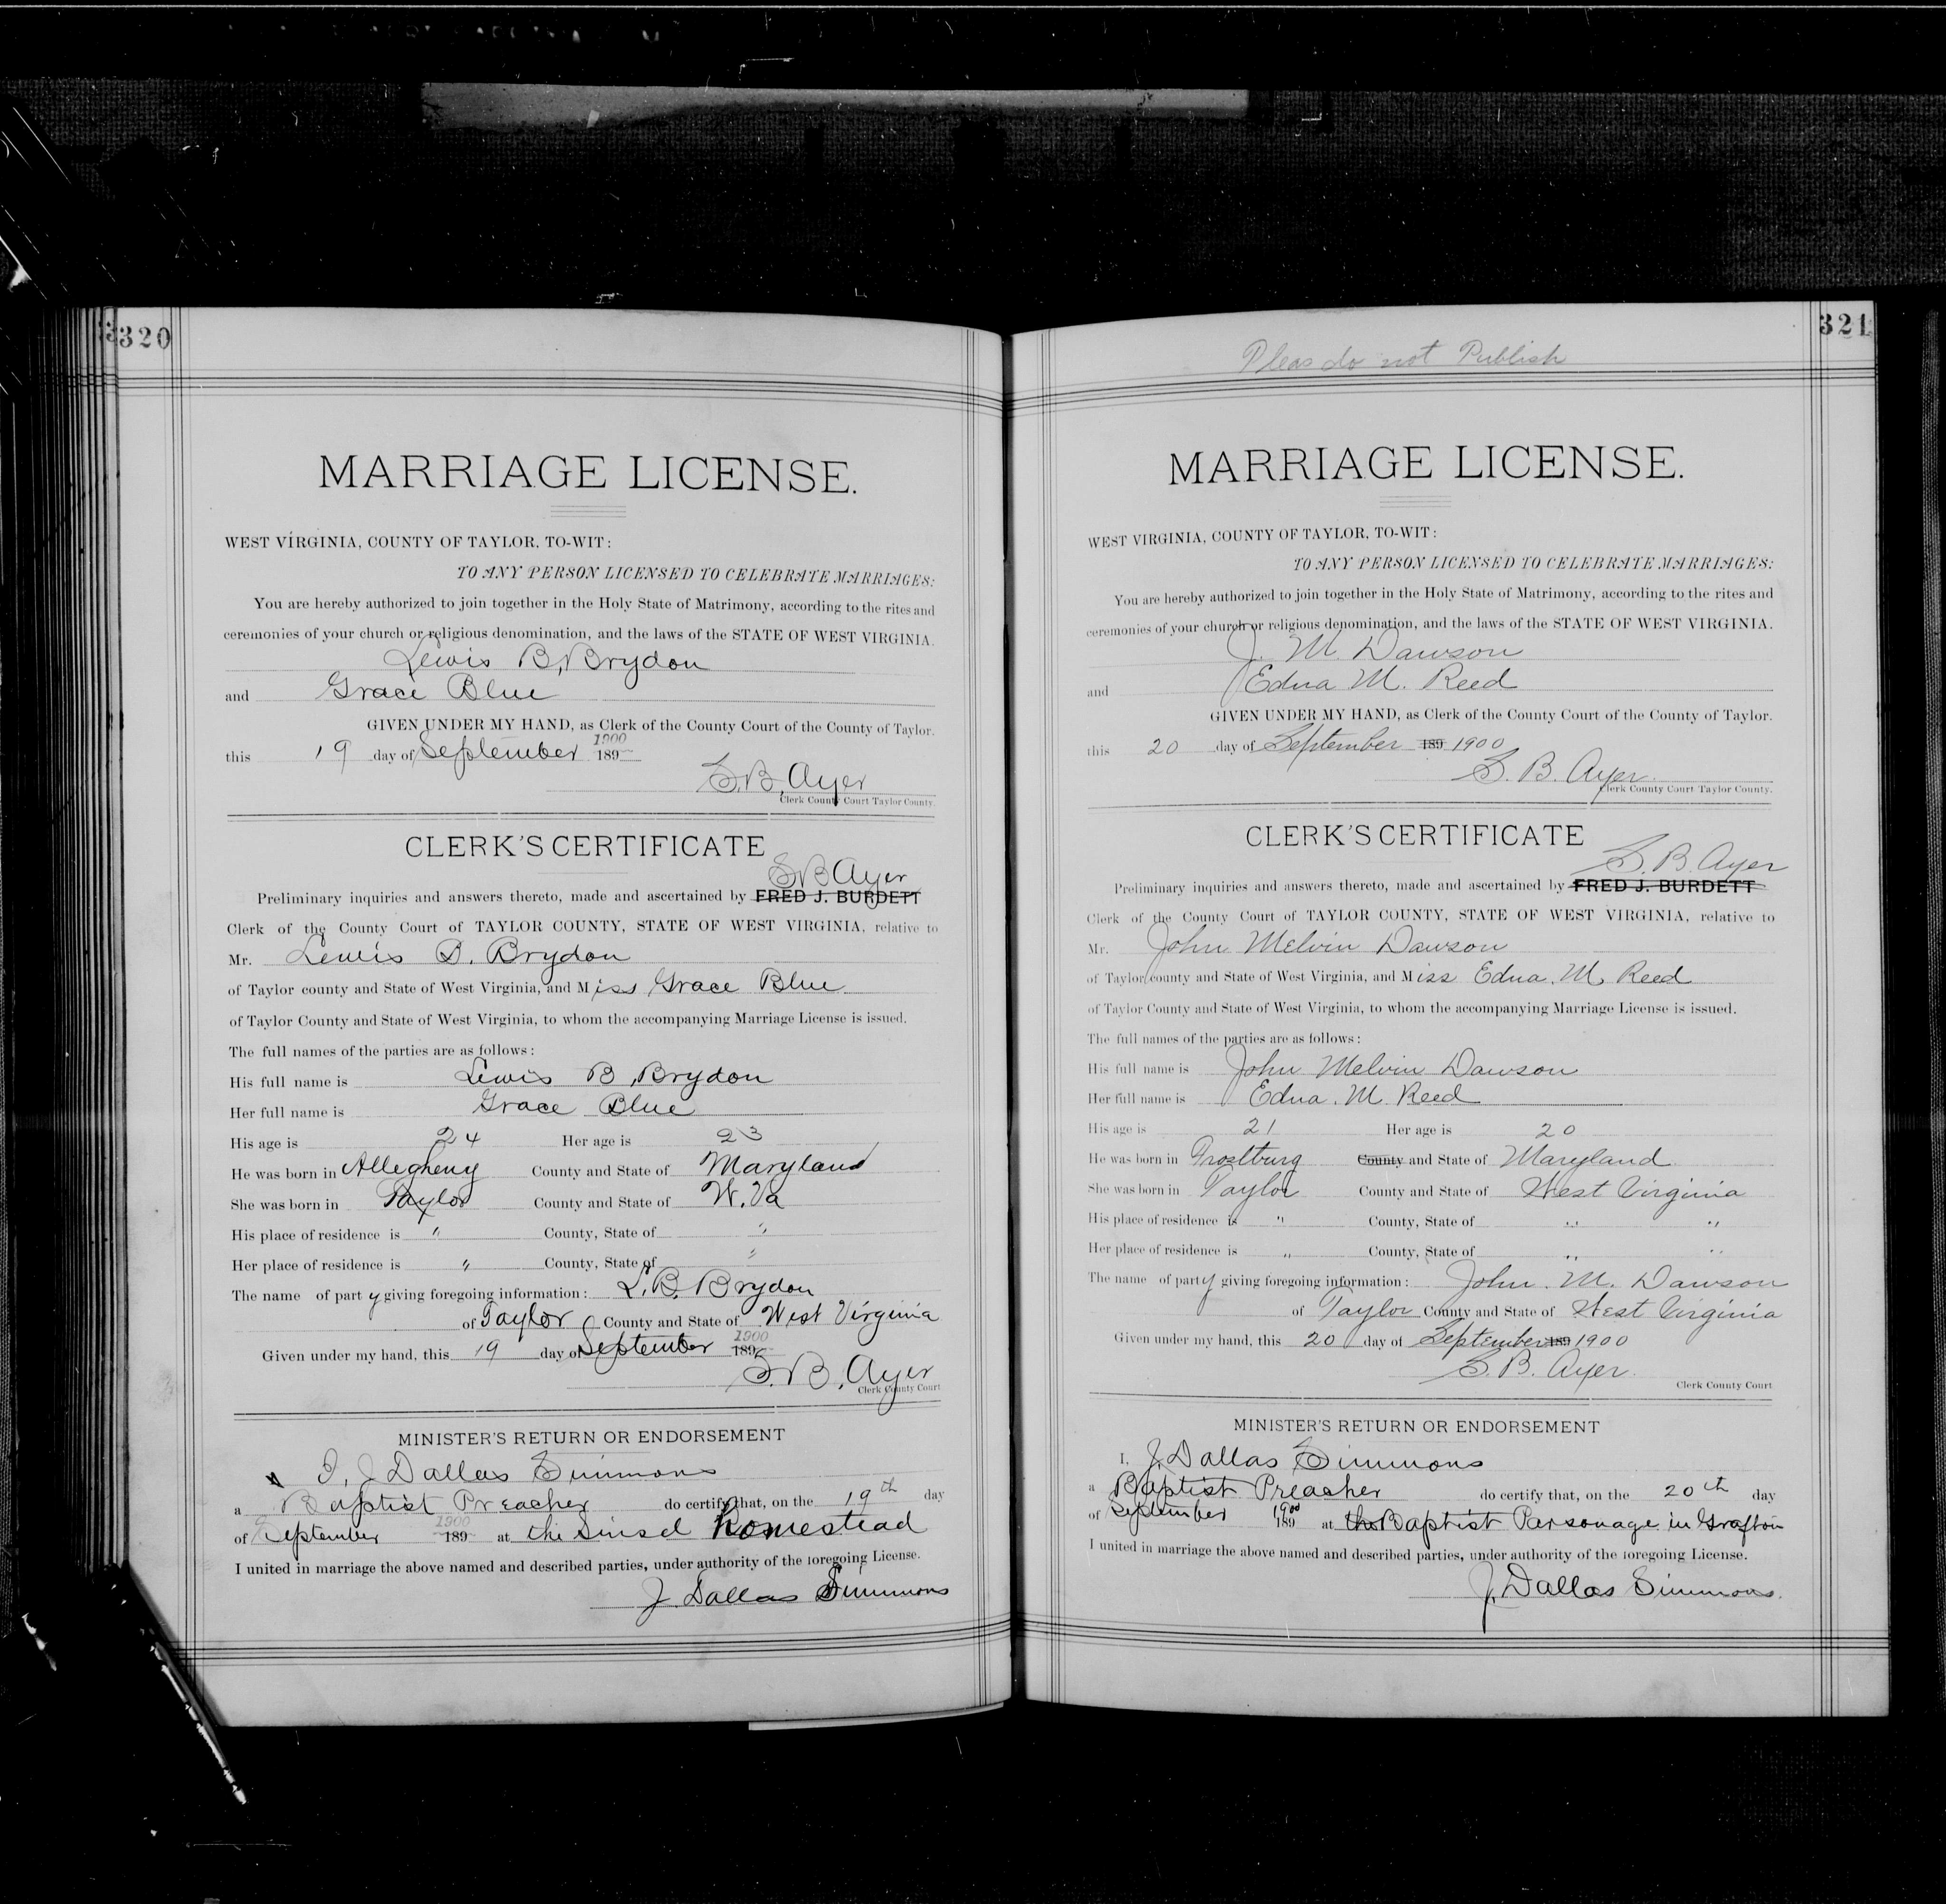 320
MARRIAGE LICENSE.
WEST VIRGINIA, COUNTY OF TAYLOR, TO-WIT:
TO ANY PERSON LICENSED TO CELEBRATE MARRIAGES:
You are hereby authorized to join together in the Holy State of Matrimony, according to the rites and
ceremonies of your church or religious denomination, and the laws of the STATE OF WEST VIRGINIA.
Lewis B, Brydon
and Grace Blue
GIVEN UNDER MY HAND, as Clerk of the County Court of the County of Taylor.
this 19 day of September 189 1900
S. B, Ayer
Clerk County Court Taylor County.
CLERK'S CERTIFICATE
S B Ayer
Preliminary inquiries and answers thereto, made and ascertained by FRED J. BURDETT
Clerk of the County Court of TAYLOR COUNTY, STATE OF WEST VIRGINIA, relative to
Mr. Lewis B. Brydon
of Taylor county and State of West Virginia, and Miss Grace Blue
of Taylor County and State of West Virginia, to whom the accompanying Marriage License is issued.
The full names of the parties are as follows:
His full name is Lewis B, Brydon
Her full name is Grace Blue
His age is 24 Her age is 23
He was born in Allegheny County and State of Maryland
She was born in Taylor County and State of W. Va
His place of residence is " County, State of "
Her place of residence is " County, State of "
The name of party giving foregoing information: L. B. Brydon
of Taylor County and State of West Virginia
Given under my hand, this 19 day of September 189 1900
S. B, Ayer
Clerk County Court
MINISTER'S RETURN OR ENDORSEMENT
I, J Dallas Simmons
a Baptist Preacher do certify that, on the 19th day
of September 189 1900 at the Sinsel Homestead
I united in marriage the above named and described parties, under authority of the foregoing License.
J. Dallas Simmons
321
Pleas do not Publish
MARRIAGE LICENSE.
WEST VIRGINIA, COUNTY OF TAYLOR, TO-WIT:
TO ANY PERSON LICENSED TO CELEBRATE MARRIAGES:
You are hereby authorized to join together in the Holy State of Matrimony, according to the rites and
ceremonies of your church or religious denomination, and the laws of the STATE OF WEST VIRGINIA.
J. M. Dawson
and Edna M. Reed
GIVEN UNDER MY HAND, as Clerk of the County Court of the County of Taylor.
this 20 day of September 189 1900
S. B. Ayer.
Clerk County Court Taylor County.
CLERK'S CERTIFICATE
S. B. Ayer
Preliminary inquiries and answers thereto, made and ascertained by FRED J. BURDETT
Clerk of the County Court of TAYLOR COUNTY, STATE OF WEST VIRGINIA, relative to
Mr. John Melvin Dawson
of Taylor county and State of West Virginia, and Miss Edna. M. Reed
of Taylor County and State of West Virginia, to whom the accompanying Marriage License is issued.
The full names of the parties are as follows:
His full name is John Melvin Dawson
Her full name is Edna. M. Reed
His age is 21 Her age is 20
He was born in Frostburg County and State of Maryland
She was born in Taylor County and State of West Virginia
His place of residence is " County, State of " "
Her place of residence is " County, State of " "
The name of party giving foregoing information: John. M. Dawson
of Taylor County and State of West Virginia
Given under my hand, this 20 day of September 189 1900
S. B. Ayer.
Clerk County Court
MINISTER'S RETURN OR ENDORSEMENT
I, J. Dallas Simmons
a Baptist Preacher do certify that, on the 20th day
of September 189 1900 at the Baptist Parsonage in Grafton
I united in marriage the above named and described parties, under authority of the foregoing License.
J. Dallas Simmons.